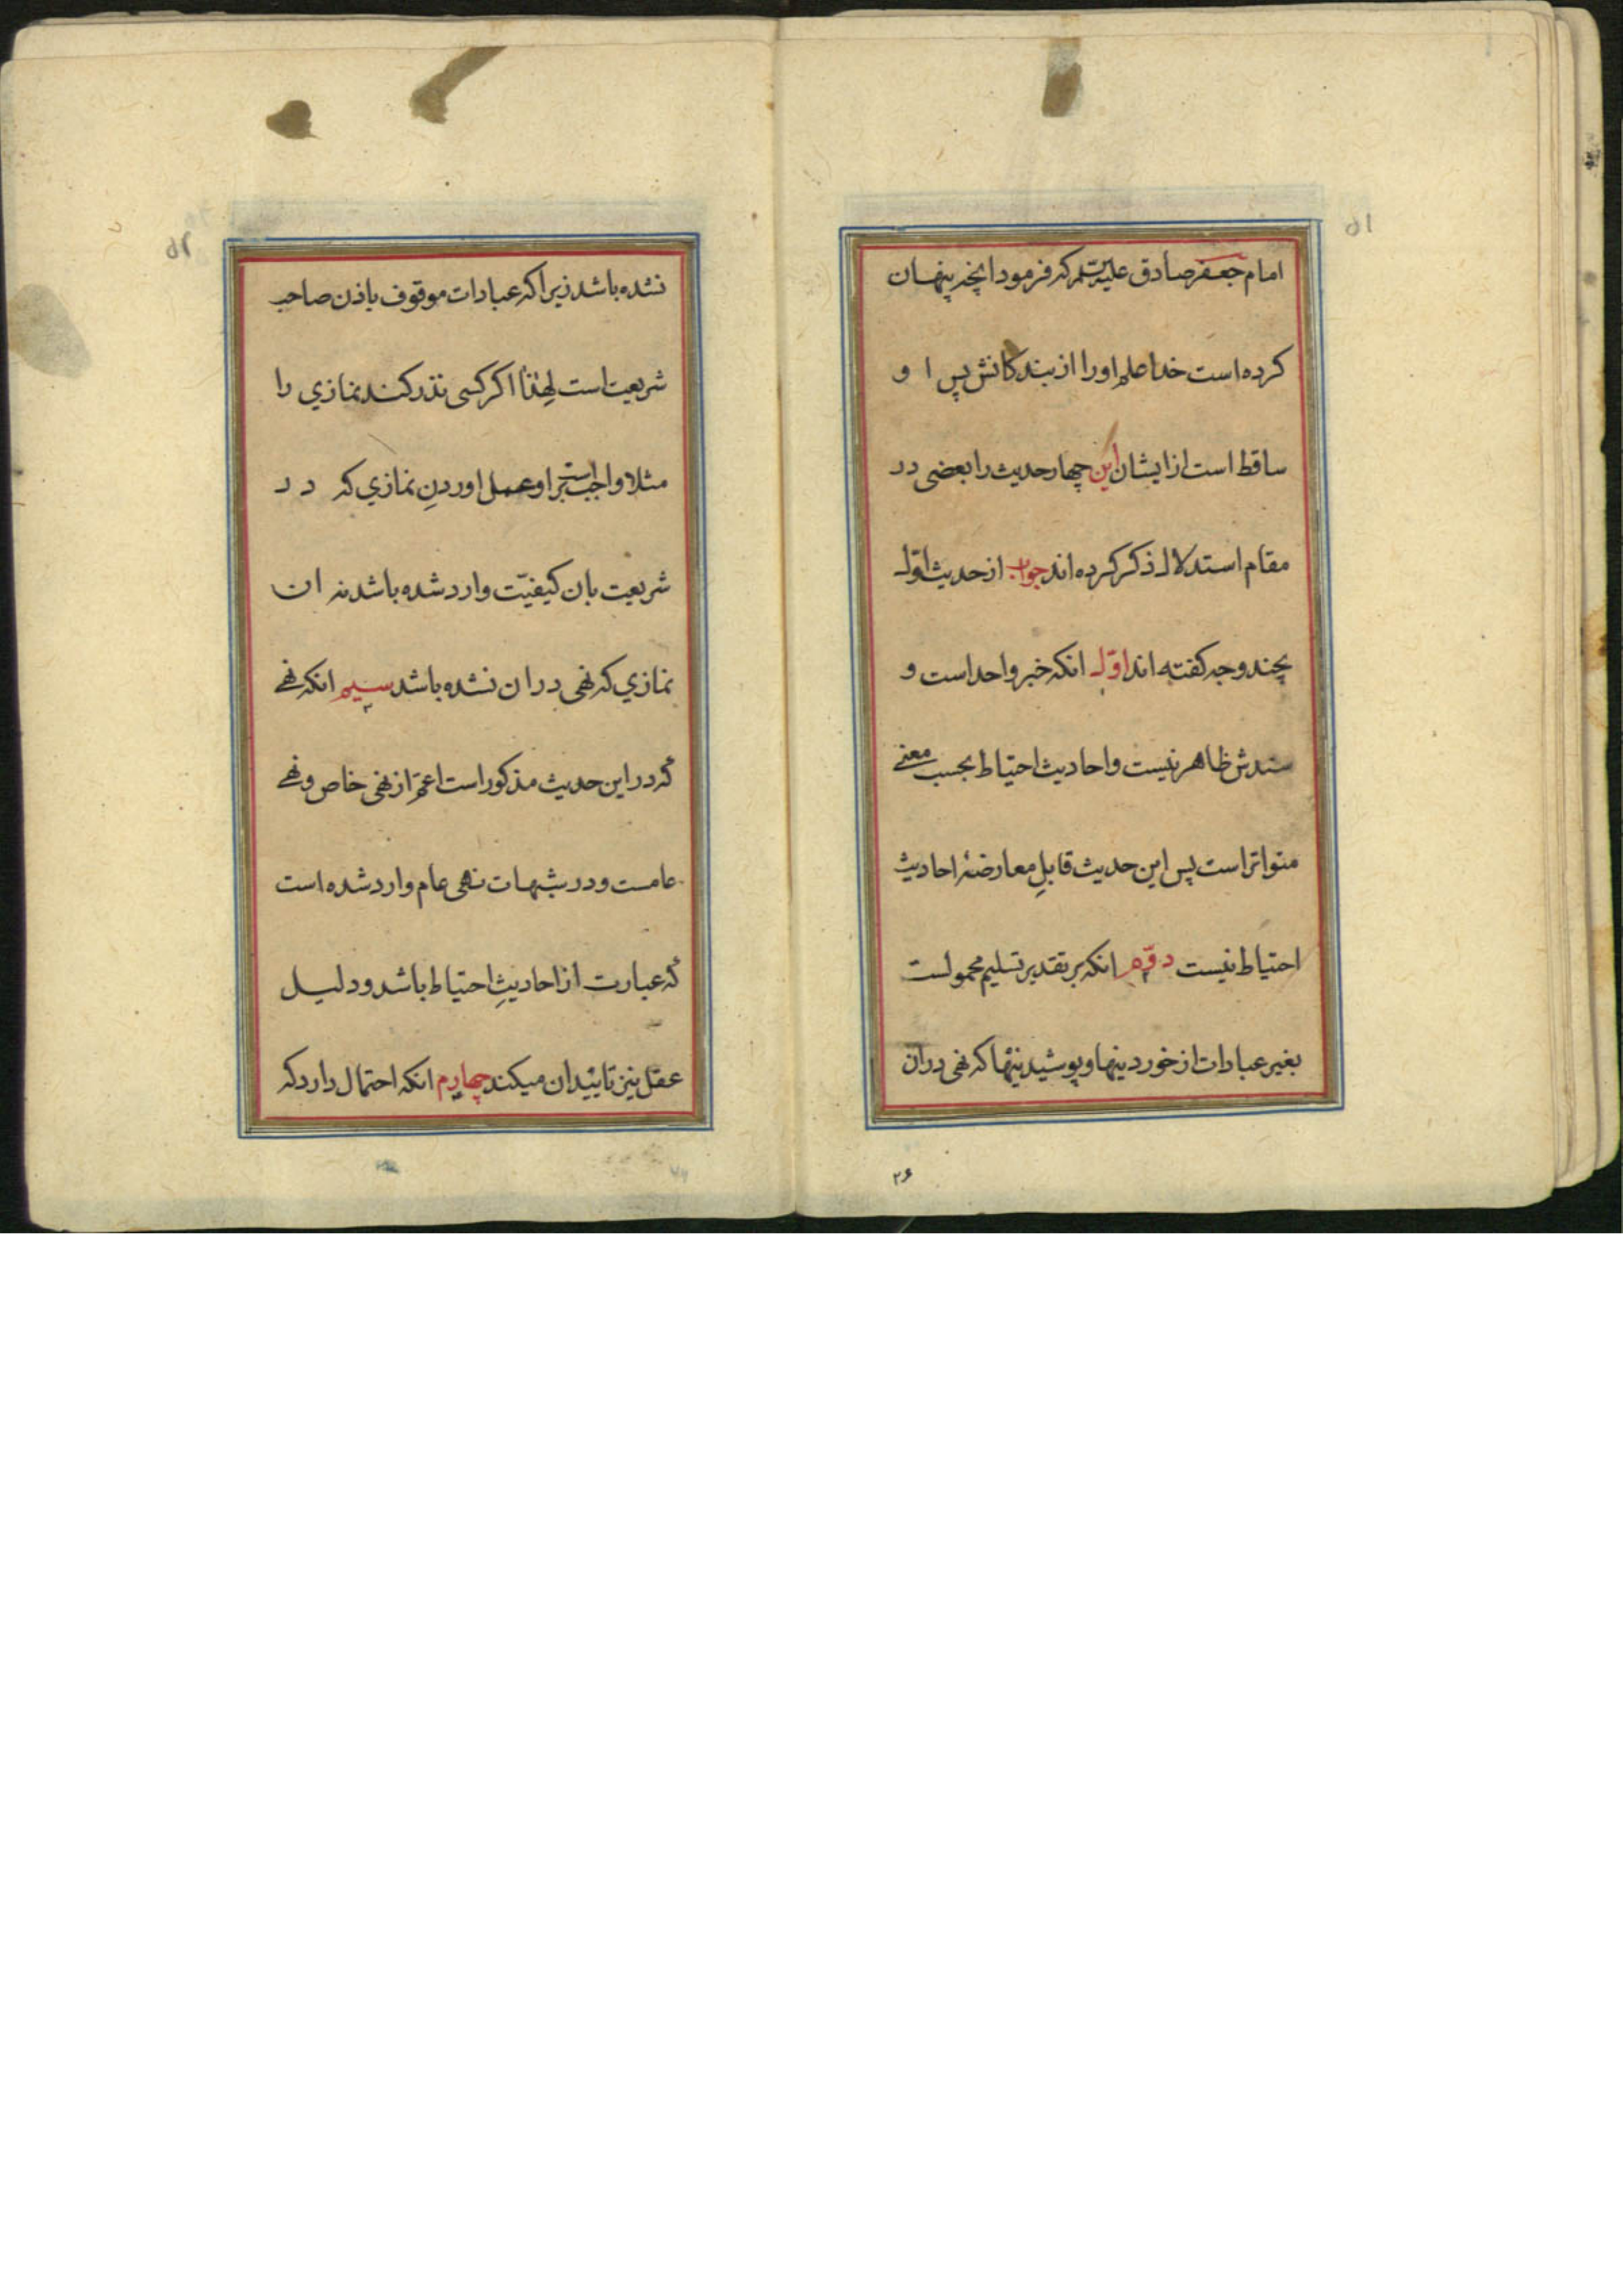 ۵۱
امام جعفر صادق علیه السلام که فرمود انچه پنهان
کرده است خدا علم او را از بندکانش پس ا و
ساقط است از ایشان این چهار حدیث را بعضی در
مقام استدلال ذکر کرده اند جواب از حدیث اول
بچند وجه کفته اند اوّل انکه خبر واحد است و
سندش ظاهر نیست و احادیث احتیاط بحسب معنی
متواتر است پس این حدیث قابلِ معارضهٔ احادیث
احتیاط نیست دوّم انکه بر تقدیر تسلیم محمولست
بغیر عبادات از خوردینها و پوشیدنیها که نهی دران
۲۶
۵۲
نشده باشد زیرا که عبادات موقوف باذن صاحب
شریعت است لهذا اکر کسی نذر کند نمازی را
مثلا واجب است بر او عمل اوردنِ نمازی که در
شریعت بان کیفیّت وارد شده باشد نه ان
نمازی که نهی دران نشده باشد سیم انکه نهی
که در این حدیث مذکور است اعمّ از نهی خاص و نهی
عامست و در شبهات نهی عام وارد شده است
که عبارت از احادیثِ احتیاط باشد و دلیل
عقل نیز تایید ان میکند چهارم انکه احتمال دارد که